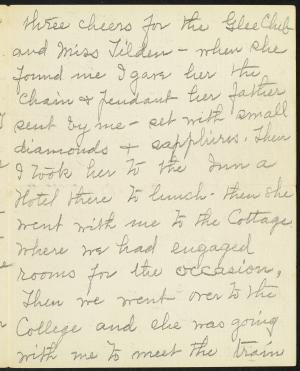 three cheers for the Glee Club
and Miss Tilden - when she
found me I gave her the
Chain & pendant her father
sent by me - set with small
diamonds & sapphires. Then
I took her to the Inn a
Hotel there to lunch - then she
went with me to the Cottage
where we had engaged
rooms for the occasion,
Then we went over to the
College and she was going
with me to meet the train